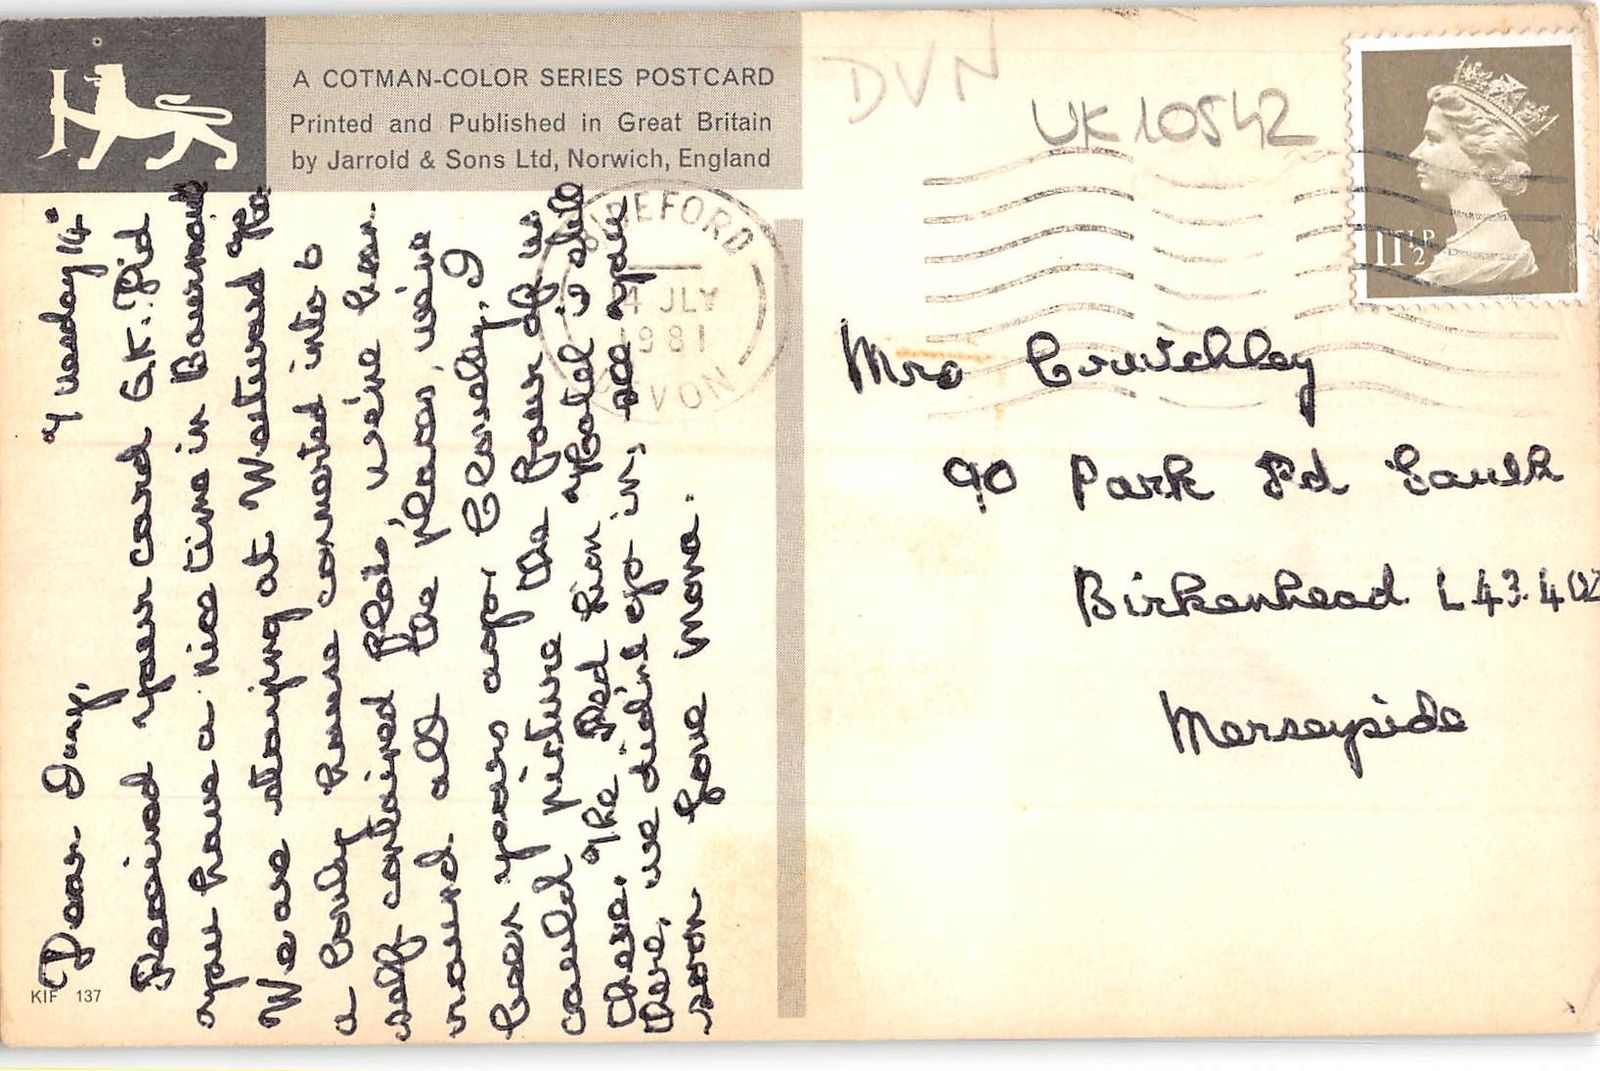 A COTMAN-COLOR SERIES POSTCARD
Printed and Published in Great Britain
by Jarrold & Sons Ltd, Norwich, England
DVN
UK10542
11½P
BIDEFORD
14 JLY
1981
DEVON
Tuesday 14th
Dear Ivy,
Received your card O.K. Did
you have a nice time in Bournemouth
We are staying at Westward Ho
a lovely house converted into 6
self contained flats, we've been
round all the places, we've
been years ago, Clovelly, I
could picture the four of us
there. The Red Lion Hotel is still
there, we didn't go in, see you
soon Love Mona.
KIF 137
Mrs Crutchley
90 Park Rd South
Birkenhead L43.4
Merseyside